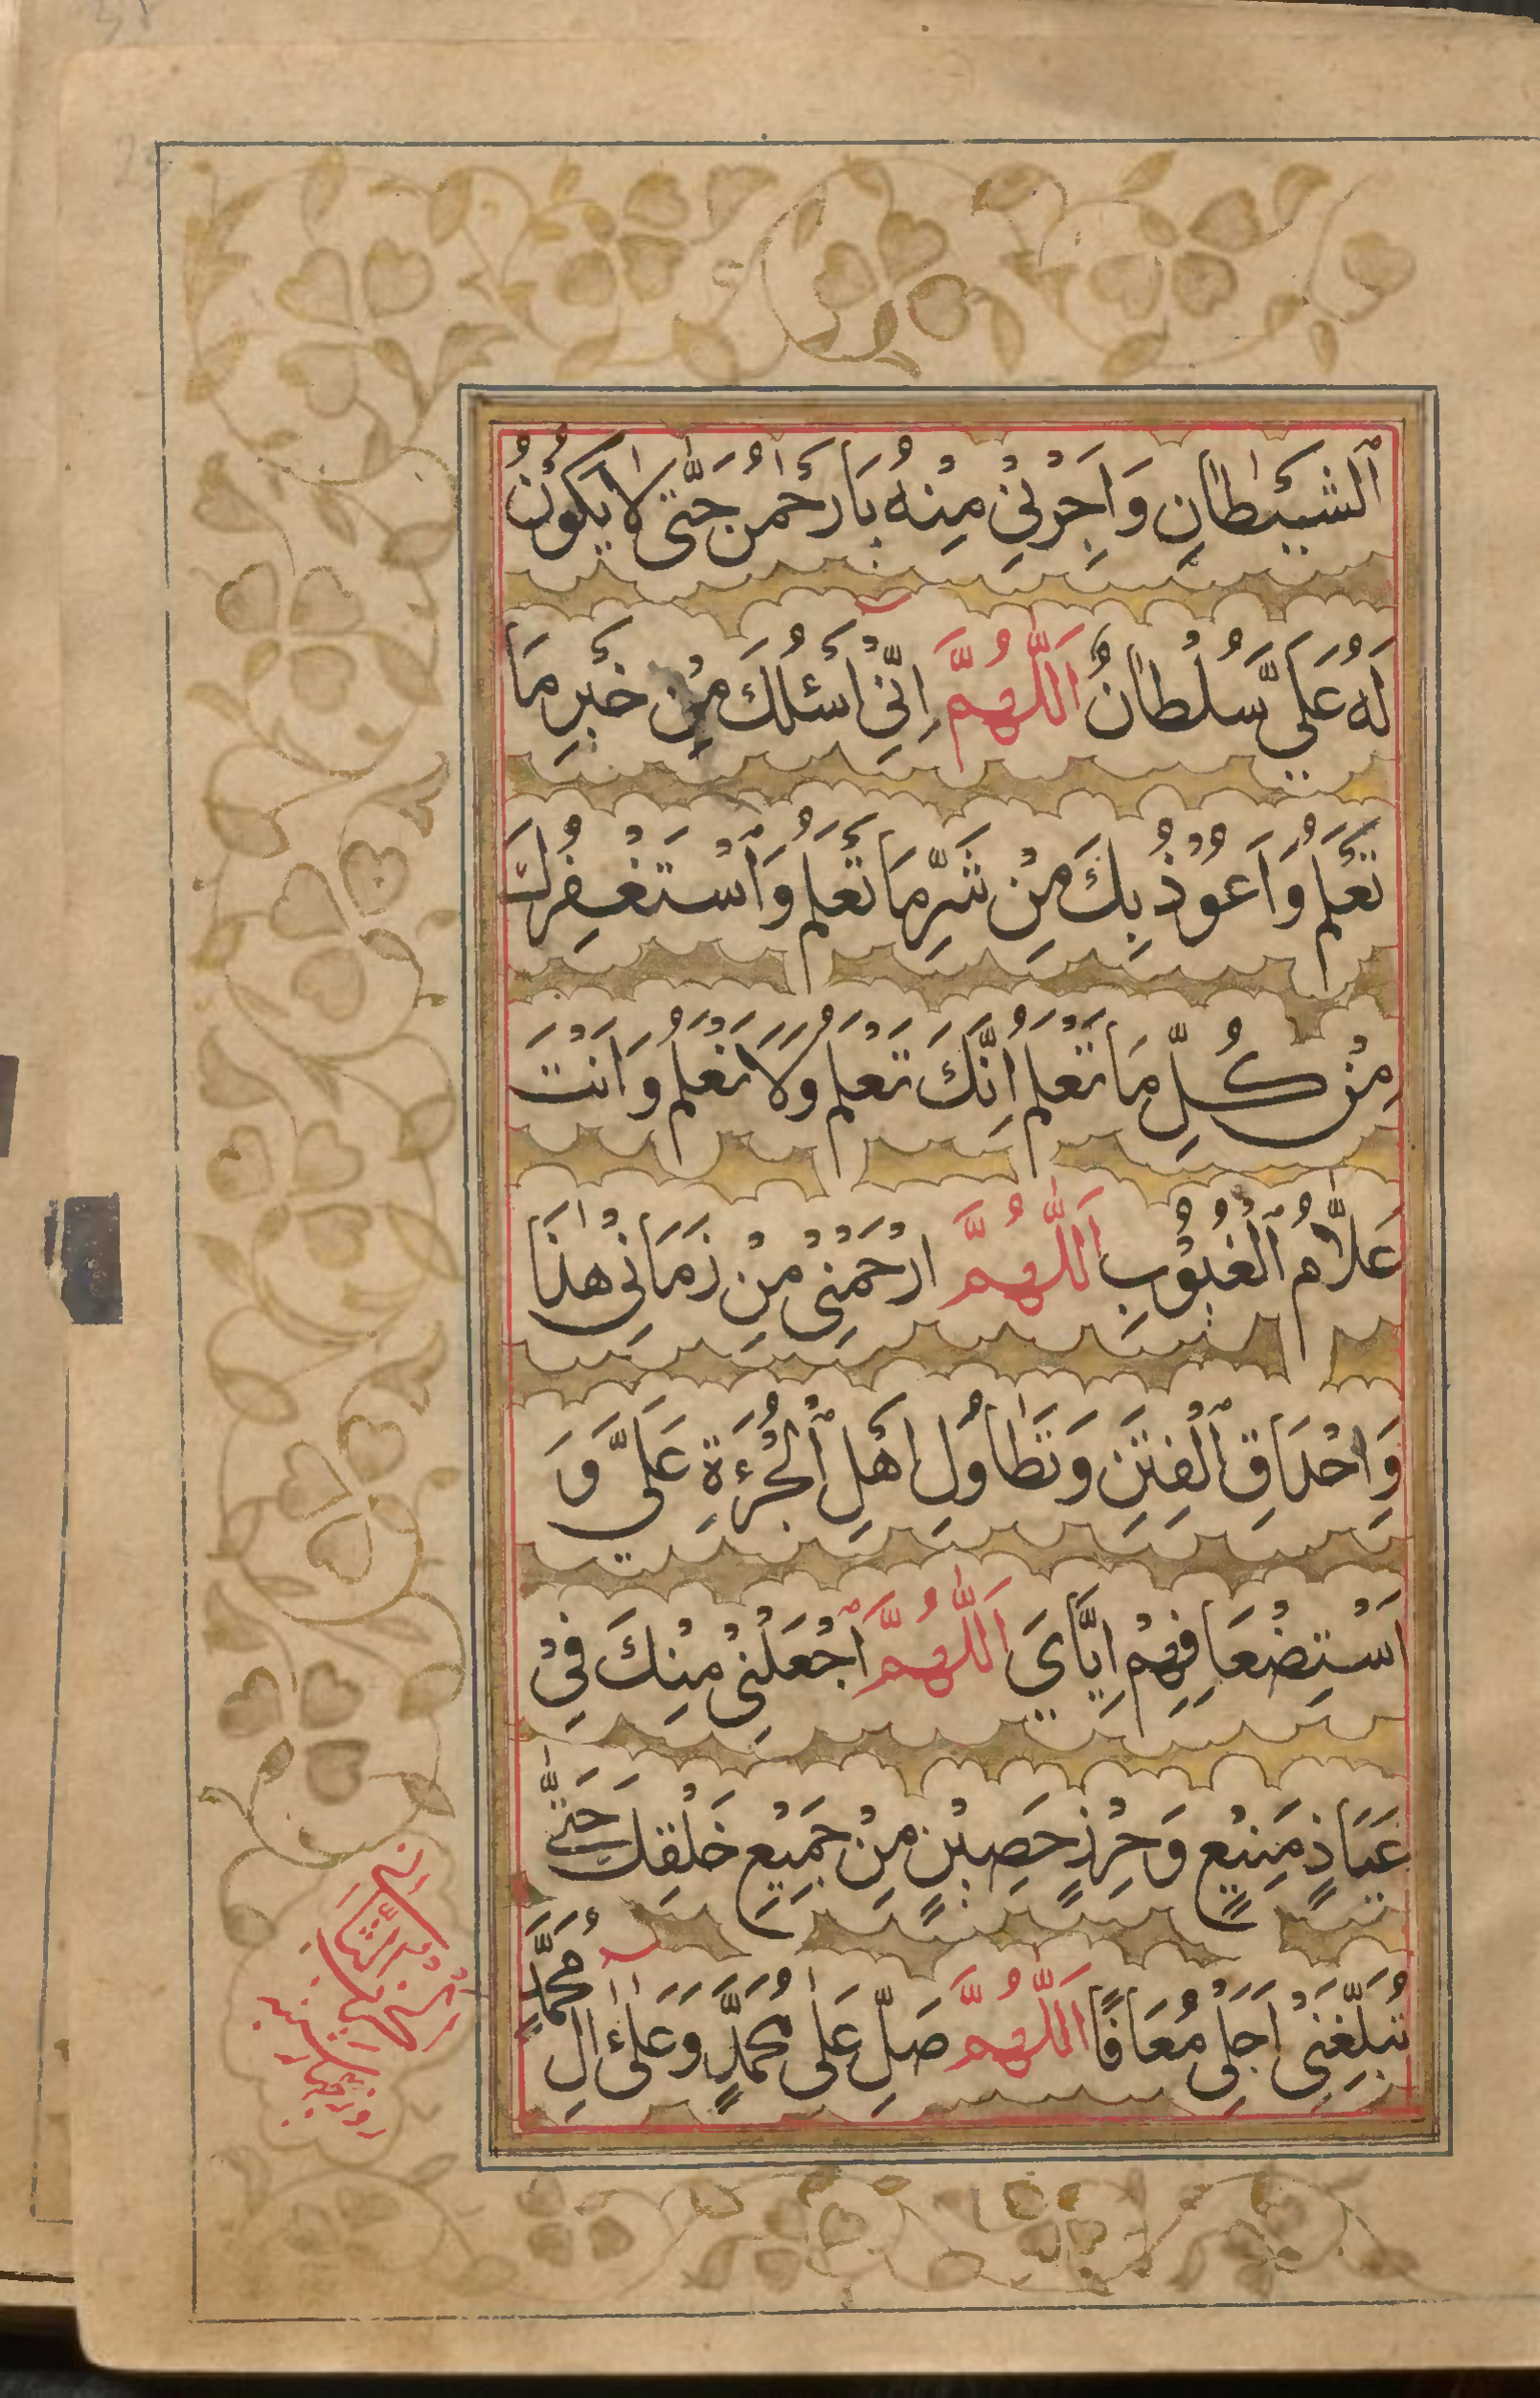 ٱلشَّيْطَانِ وَاَجِرْنِيْ مِنْهُ يَا رَحْمٰنُ حَتّٰى لَا يَكُوْنُ
لَهُ عَلَيَّ سُلْطَانٌ اَللّٰهُمَّ اِنِّيْ اَسْئَلُكَ مِنْ خَيْرِ مَا
تَعْلَمُ وَاَعُوْذُ بِكَ مِنْ شَرِّ مَا تَعْلَمُ وَاَسْتَغْفِرُكَ
مِنْ كُلِّ مَا تَعْلَمُ اِنَّكَ تَعْلَمُ وَلَا نَعْلَمُ وَاَنْتَ
عَلَّامُ ٱلْغُيُوْبِ اَللّٰهُمَّ ارْحَمْنِيْ مِنْ زَمَانِيْ هٰذَا
وَاِحْدَاقِ ٱلْفِتَنِ وَتَطَاوُلِ اَهْلِ ٱلْجُرْءَةِ عَلَيَّ وَ
اَسْتِضْعَافِهِمْ اِيَّايَ اَللّٰهُمَّ ٱجْعَلْنِيْ مِنْكَ فِيْ
عَيَاذٍ مَنِيْعٍ وَحِرْزٍ حَصِيْنٍ مِنْ جَمِيْعِ خَلْقِكَ حَتّٰى
تُبَلِّغَنِيْ اَجَلِيْ مُعَافًا اَللّٰهُمَّ صَلِّ عَلٰى مُحَمَّدٍ وَعَلٰى اٰلِ مُحَمَّدٍ